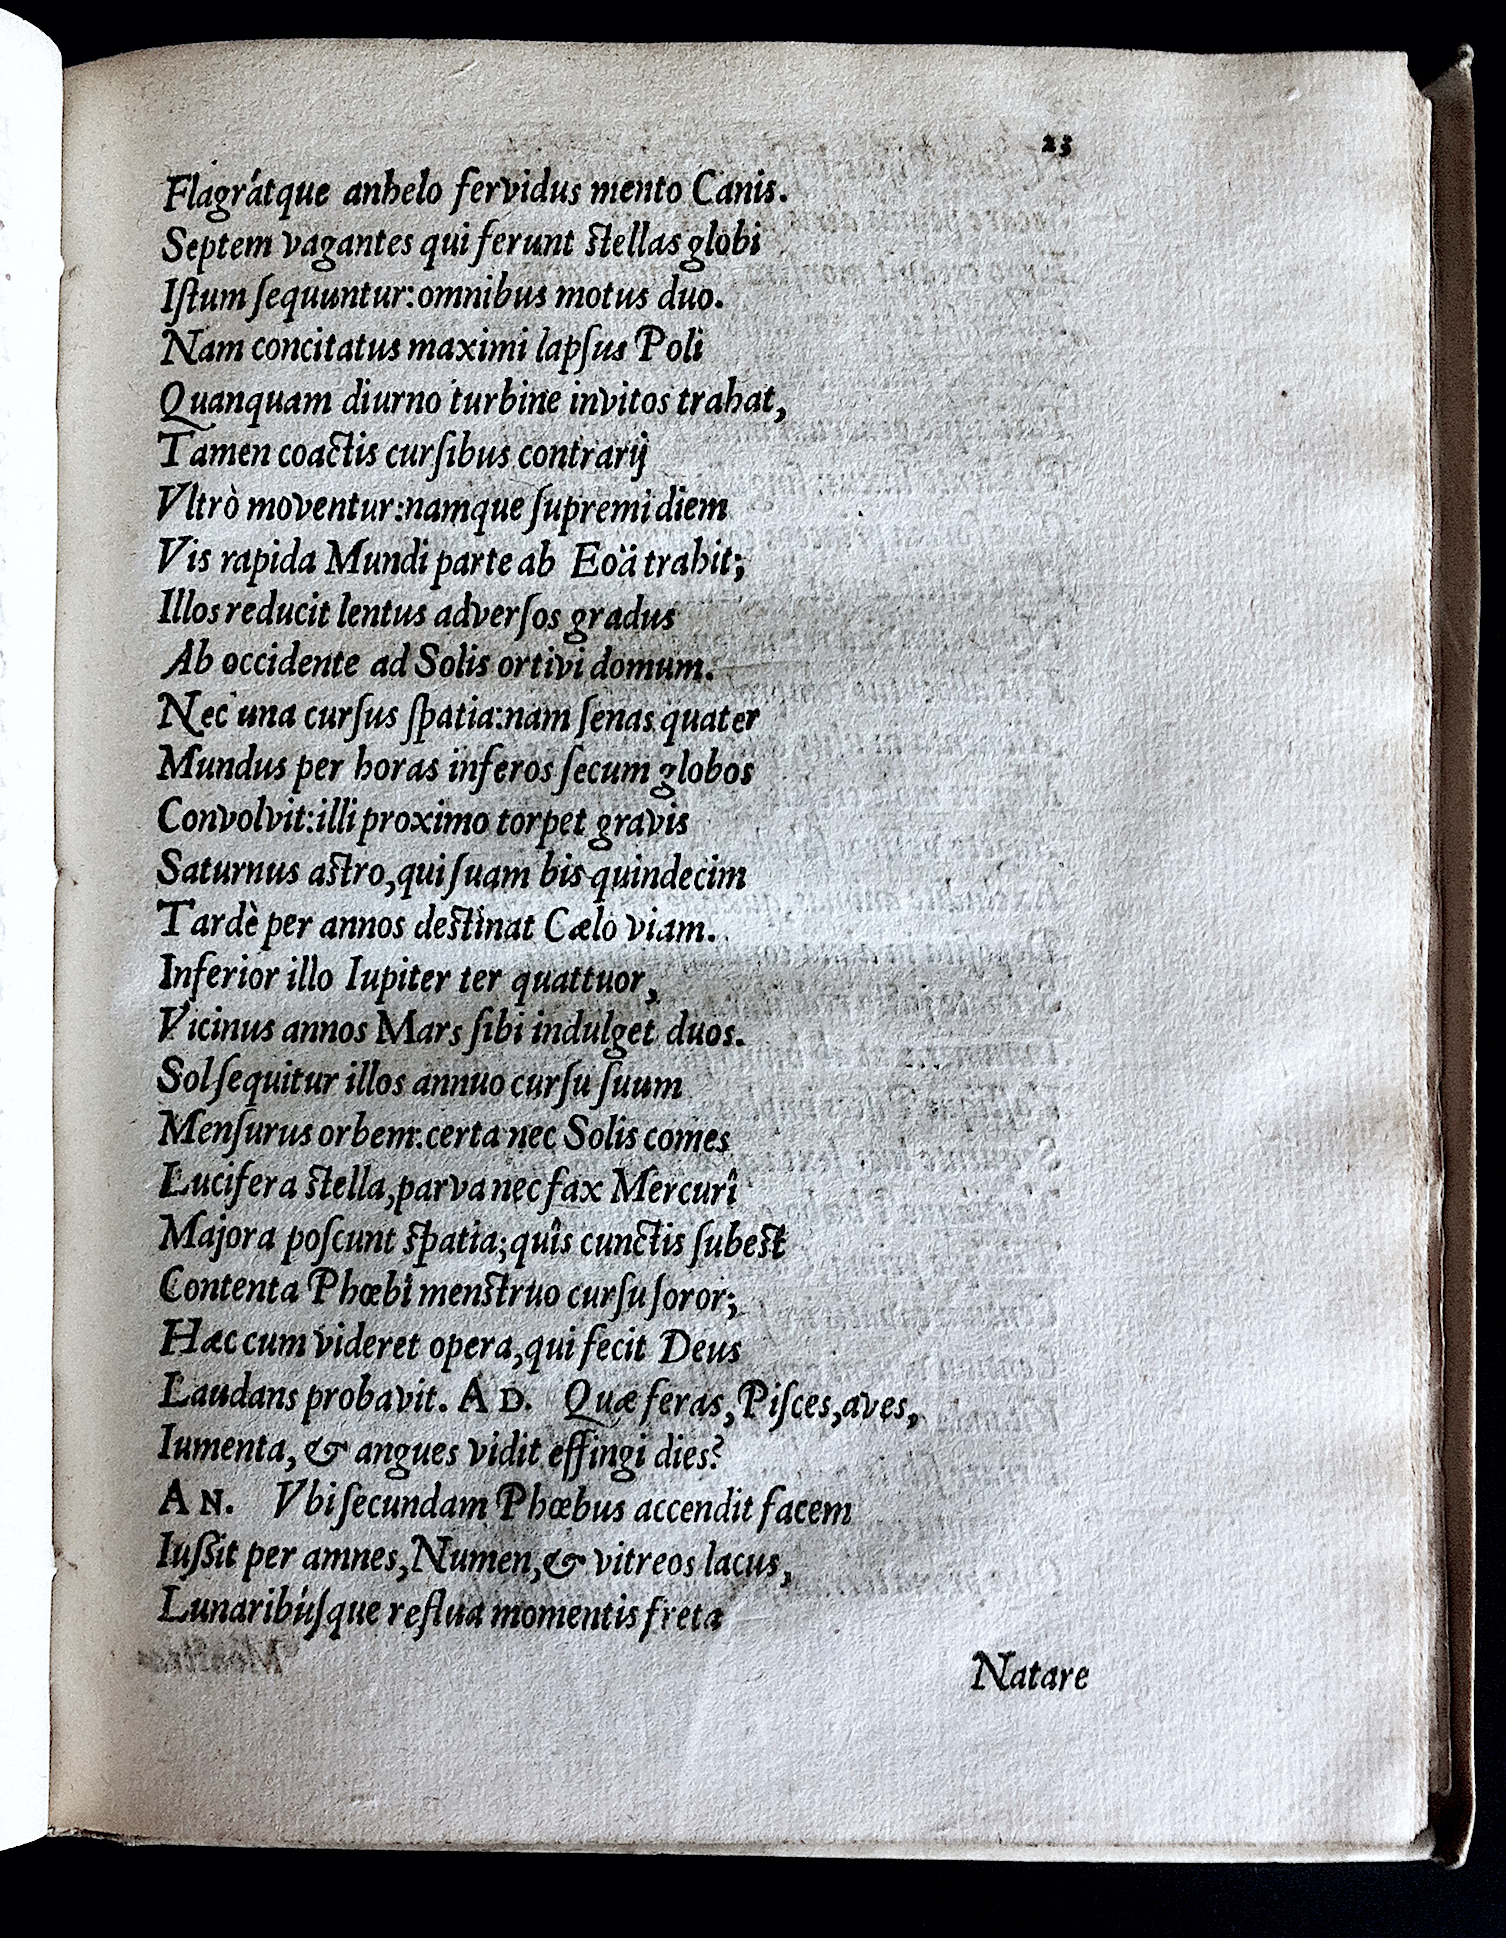 23
Flagrátque anhelo fervidus mento Canis.
Septem vagantes qui ferunt stellas globi
Iſtum ſequuntur: omnibus motus duo.
Nam concitatus maximi lapſus Poli
Quanquam diurno turbine invitos trahat,
Tamen coactis curſibus contrarij
Vltrò moventur: namque ſupremi diem
Vis rapida Mundi parte ab Eoä trahit;
Illos reducit lentus adverſos gradus
Ab occidente ad Solis ortivi domum.
Nec una curſus ſpatia: nam ſenas quater
Mundus per horas inferos ſecum globos
Convolvit: illi proximo torpet gravis
Saturnus astro, qui ſuam bis quindecim
Tardè per annos destinat Cælo viam.
Inferior illo Iupiter ter quattuor,
Vicinus annos Mars ſibi indulget duos.
Sol ſequitur illos annuo curſu ſuum
Menſurus orbem: certa nec Solis comes
Lucifera stella, parva nec fax Mercurî
Majora poſcunt spatia; quîs cunctis ſubest
Contenta Phœbi menstruo curſu ſoror;
Hæc cum videret opera, qui fecit Deus
Laudans probavit. AD. Quæ feras, Piſces, aves,
Iumenta, & angues vidit effingi dies?
AN. Vbi ſecundam Phœbus accendit facem
Iuſſit per amnes, Numen, & vitreos lacus,
Lunaribúſque reflua momentis freta
Natare